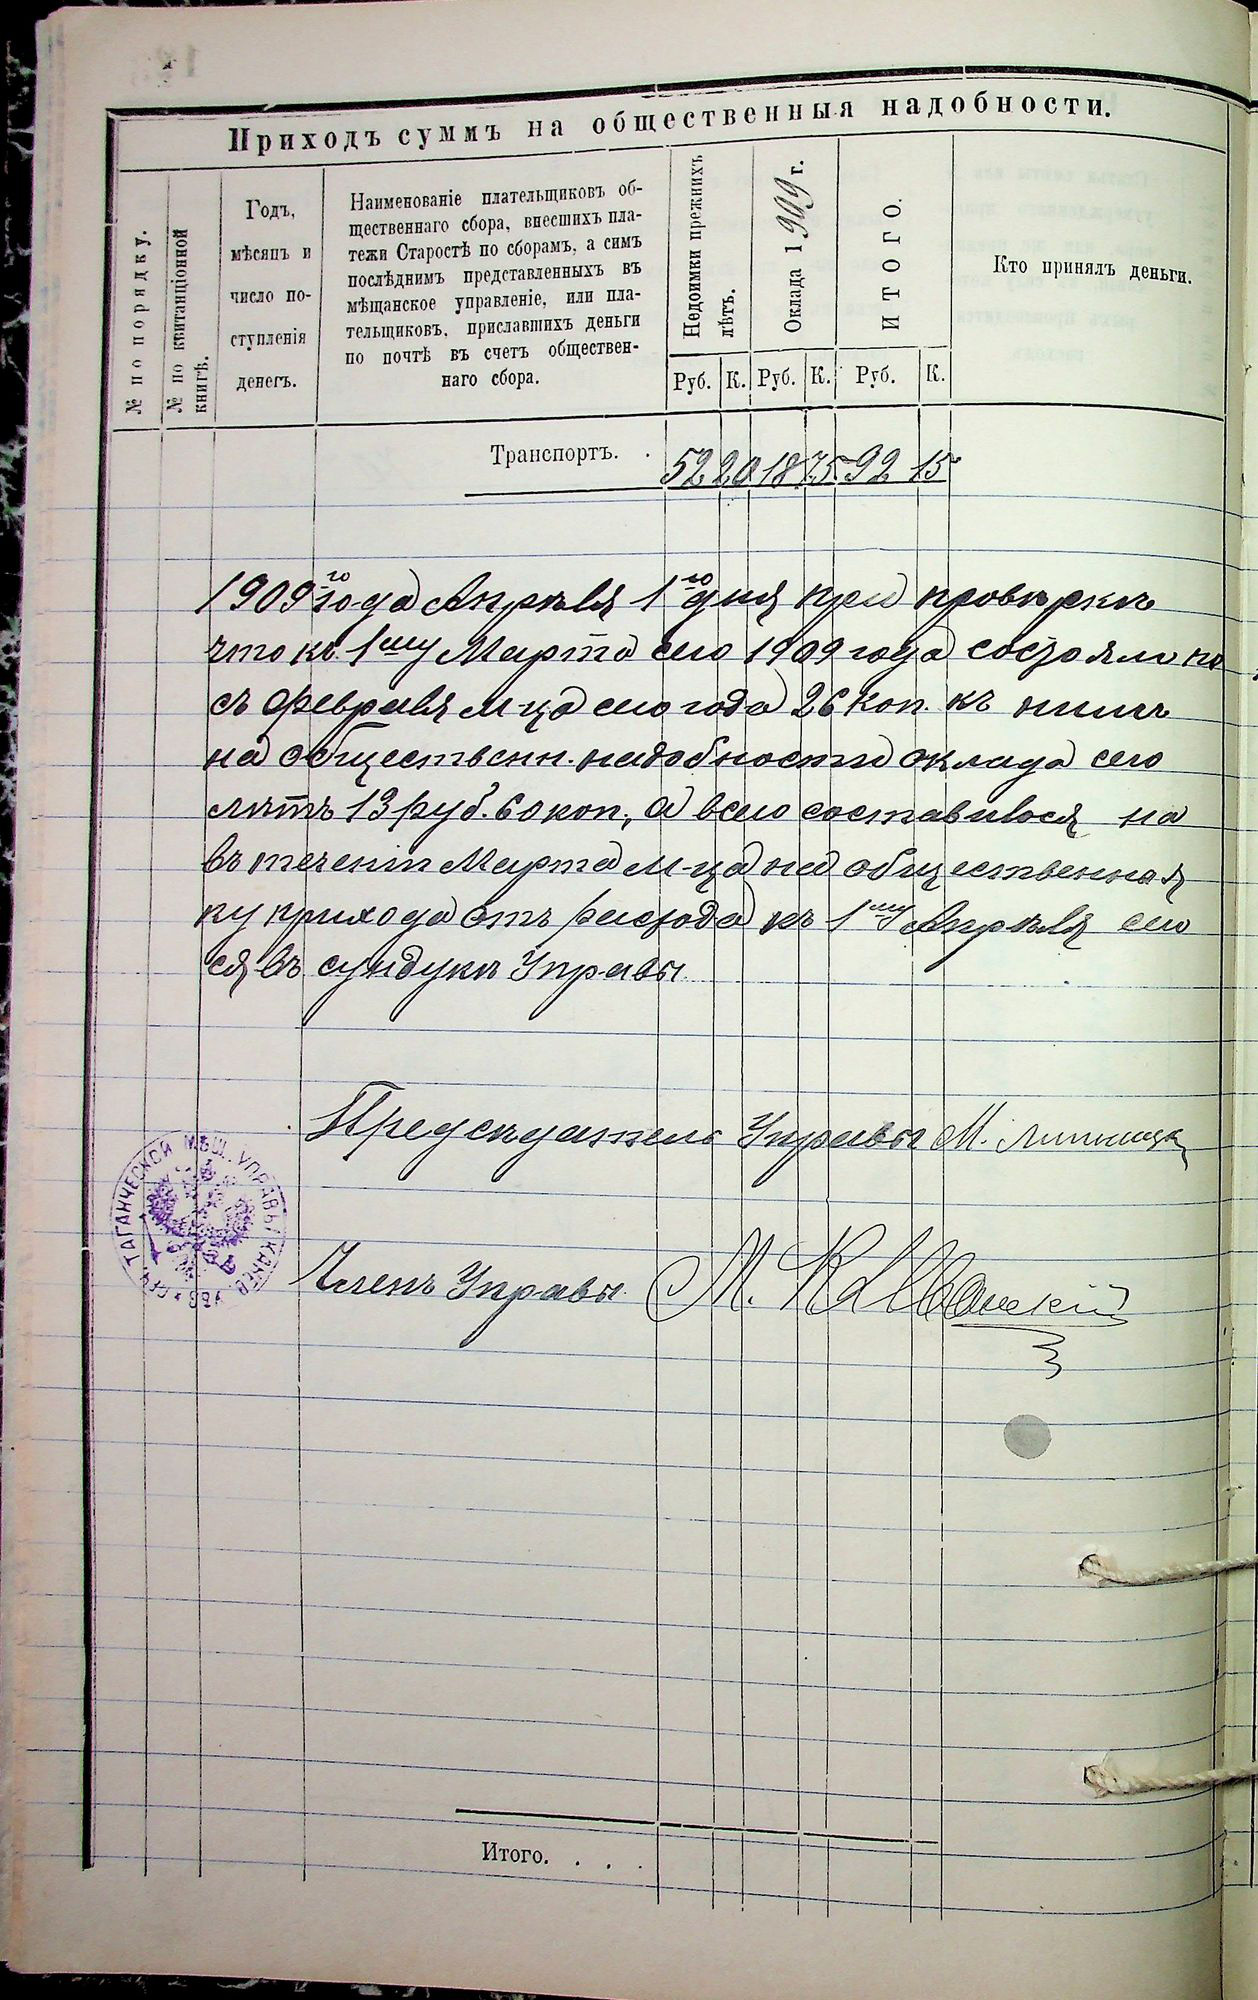 Приходъ суммъ на общественныя надобности.
№ по порядку.
№ по квитанціонной
книгѣ.
Годъ,
мѣсяцъ и
число по-
ступленія
денегъ.
Наименованіе плательщиковъ об-
щественнаго сбора, внесшихъ пла-
тежи Старостѣ по сборамъ, а симъ
послѣднимъ представленныхъ въ
мѣщанское управленіе, или пла-
тельщиковъ, приславшихъ деньги
по почтѣ въ счетъ обществен-
наго сбора.
Недоимки прежнихъ
лѣтъ.
Оклада 1909 г.
ИТОГО.
Кто принялъ деньги.
Руб. К. Руб. К. Руб. К.
Транспортъ. . 52 20 18 75 92 15
1909го года Апрѣля 1го дня при провѣркѣ
что къ 1му Марта сего 1909 года состояло на
съ Февраля м-ца сего года 26 коп. къ нимъ
на общественн. надобности оклада сего
лѣтъ 13 руб. 60 коп., а всего составилося на
въ теченіи Марта м-ца на общественная
ку прихода отъ расхода къ 1му Апрѣля сего
ся въ сундукѣ Управы
Предсѣдатель Управы М.
ТАГАНЧЕСКОЙ МѢЩ. УПРАВЫ
Членъ Управы М.
Итого. . . .